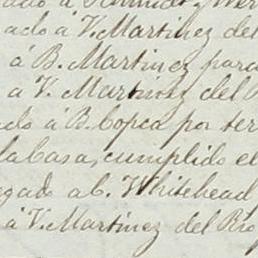 á V. Martinez del
á B. Martinez para
á V. Martinez del
á B. Copca por ter
la Casa, cumplido el
egado a C. Whitehead
á V. Martinez del Rio